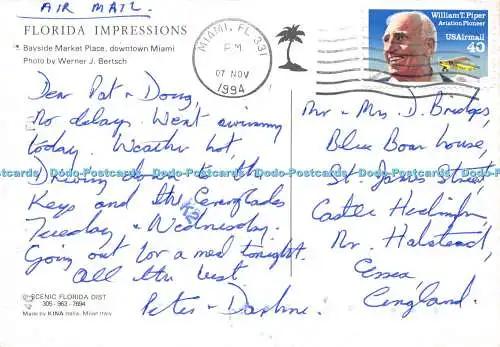 AIR MAIL
FLORIDA IMPRESSIONS
Bayside Market Place, downtown Miami
Photo by Werner J. Bertsch
MIAMI, FL 331
PM
07 NOV
1994
William T. Piper
Aviation Pioneer
USAirmail
40
Dear Pat + Doug,
No delays. Went swimming
today. Weather hot,
Driving down to the
Keys and the Everglades
Tuesday + Wednesday.
Going out for a meal tonight.
All the best
Peter + Daphne.
Mr + Mrs D. Bridges,
Blue Boar house,
St. James Street,
Castle Hedingham
Nr. Halstead,
Essex
England.
Dodo-Postcards Dodo-Postcards Dodo-Postcards Dodo-Postcards Dodo-Postcards
SCENIC FLORIDA DIST
305-963-7694
Made by KINA Italia, Milan Italy